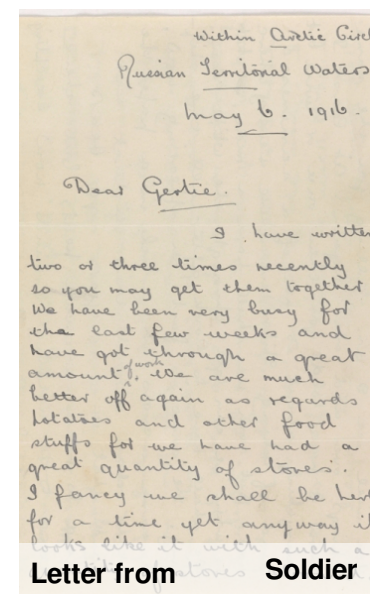 Within Arctic Circl
Russian Territorial Waters
May 6. 1916.
Dear Gertie.
I have written
two or three times recently
so you may get them together
We have been very busy for
the last few weeks and
have got through a great
of work
amount. We are much
better off again as regards
potatoes and other food
stuffs for we have had a
great quantity of stores.
I fancy we shall be her
for a time yet anyway it
looks like it with such a
quantity of stores
Letter from Soldier